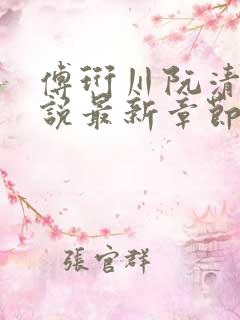 傅衍川阮清
說最新章節
張官群